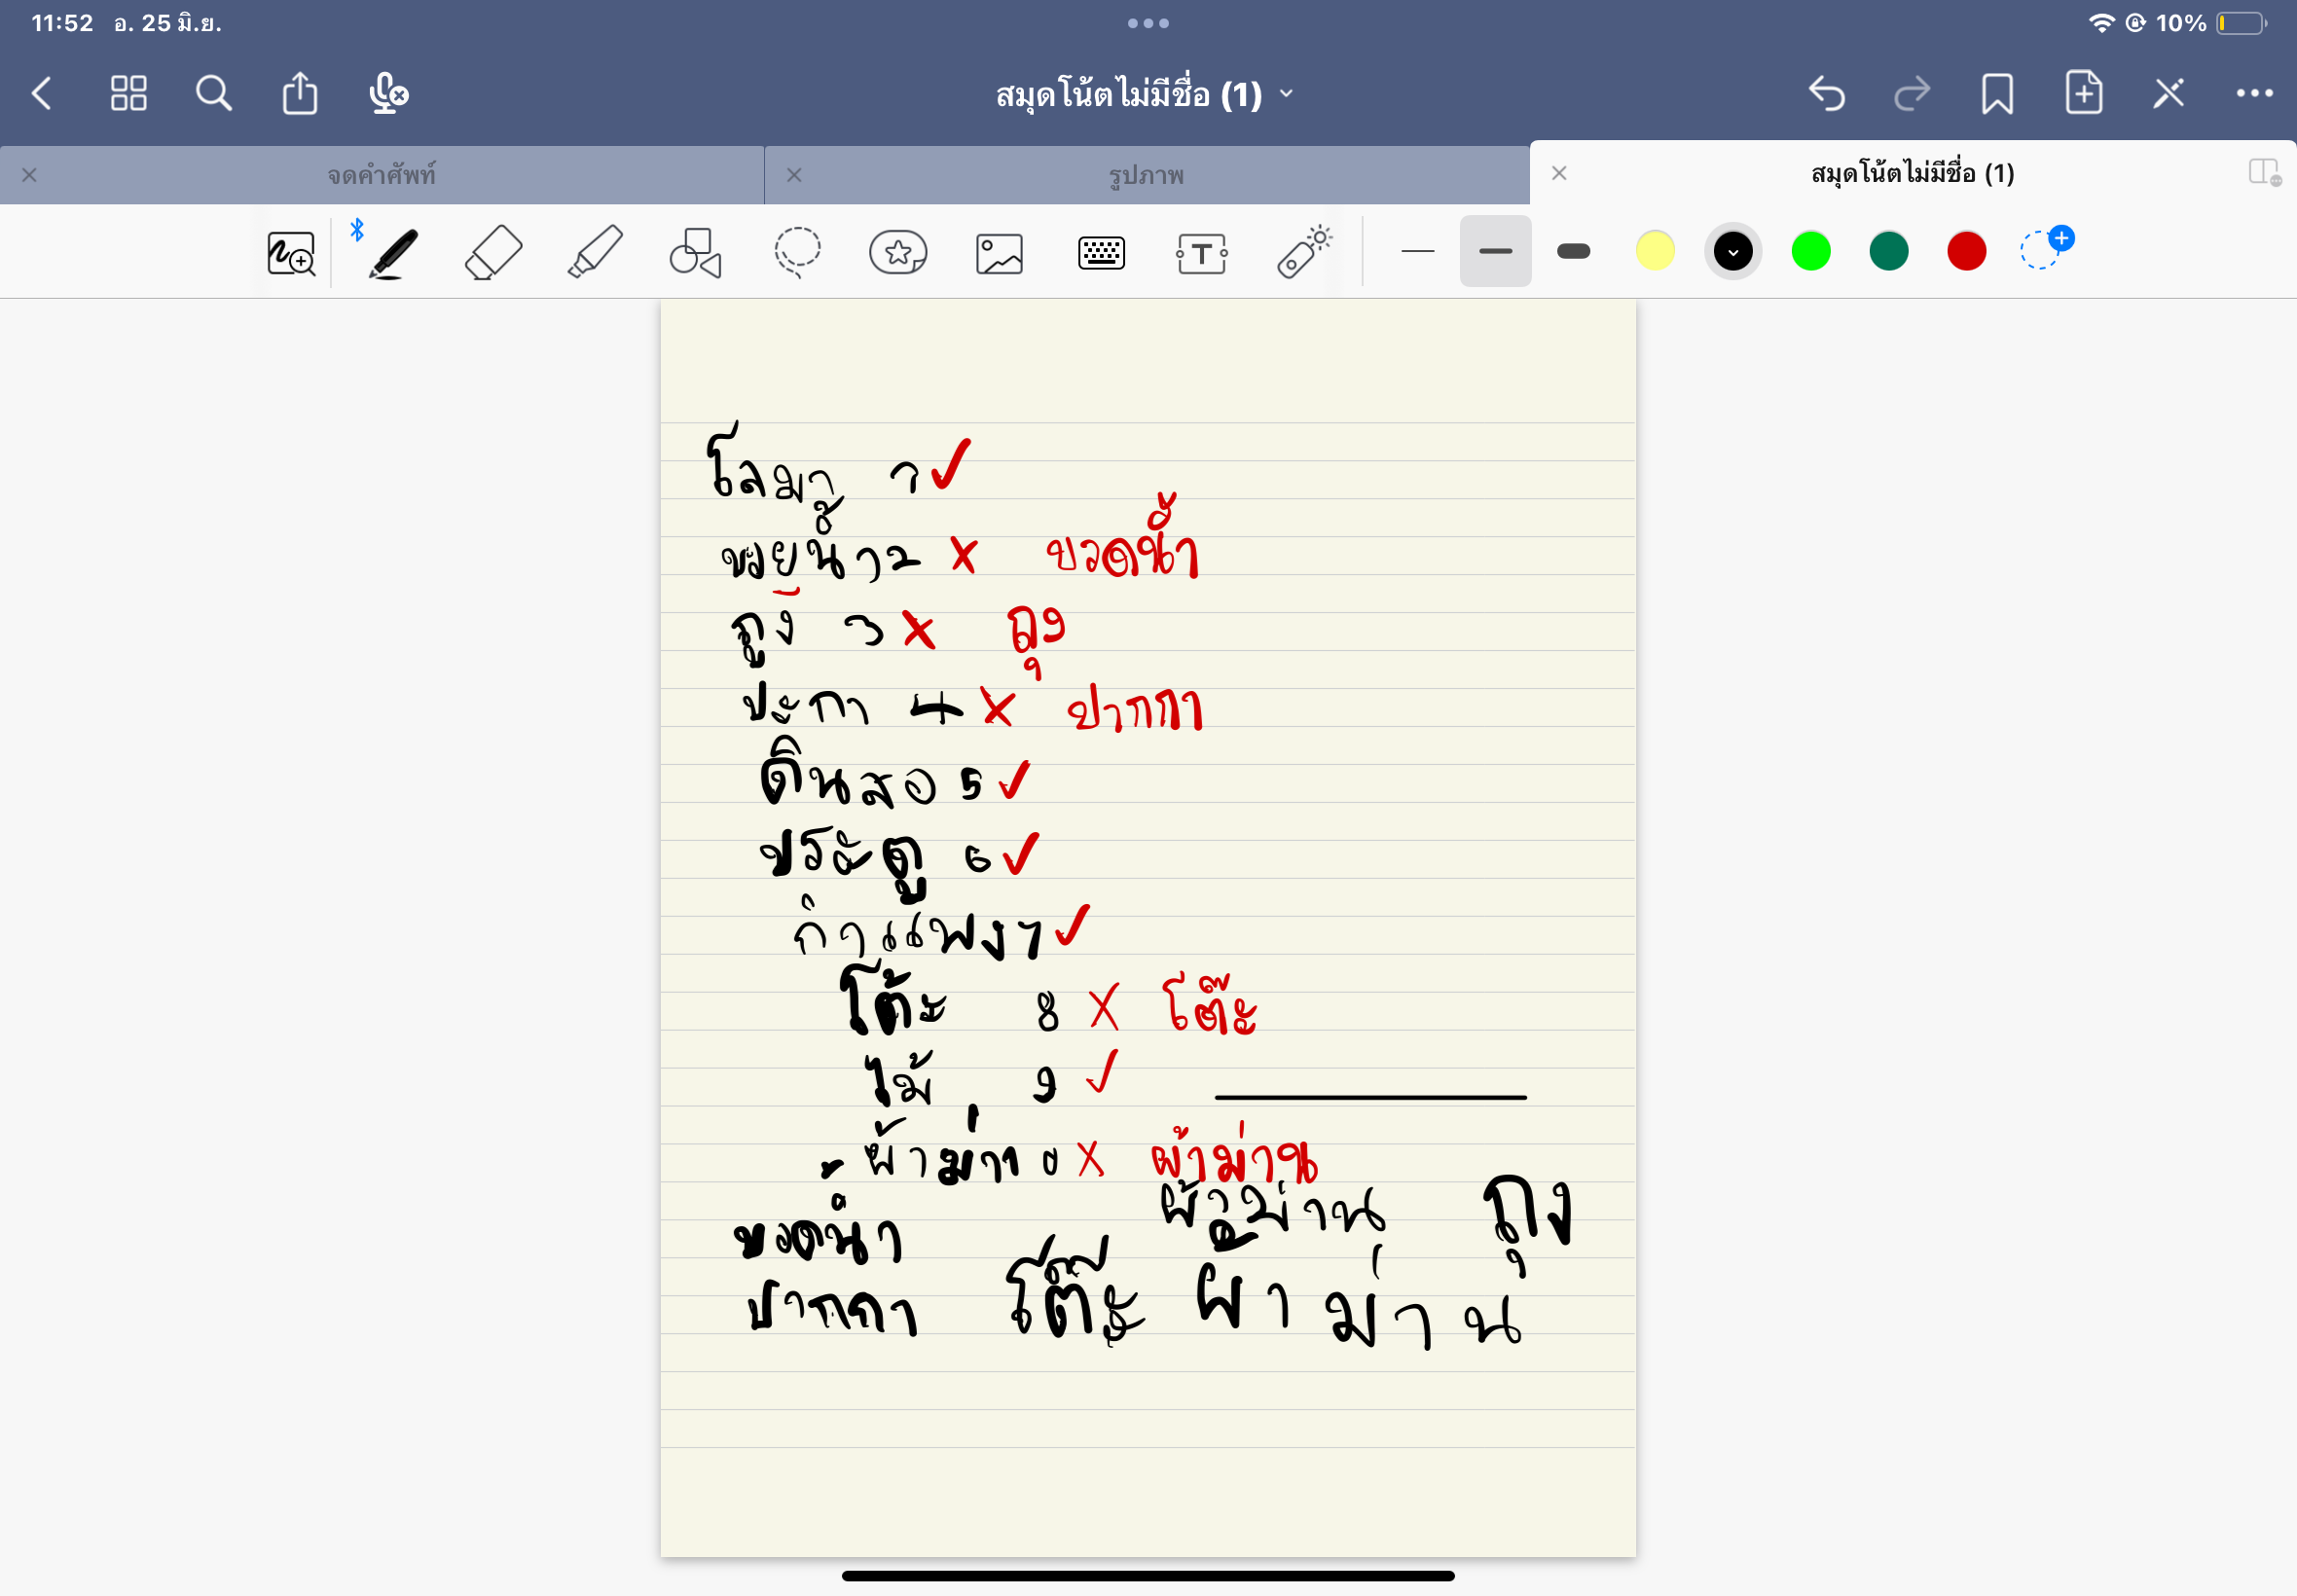 11:52 อ. 25 มิ.ย. 10%
สมุดโน้ตไม่มีชื่อ (1)
จดคำศัพท์ รูปภาพ สมุดโน้ตไม่มีชื่อ (1)
โลมา 1 ✓
น้ำ 2 X ขวดน้ำ
3 X ถุง
ปะกา 4 X ปากกา
ดินสอ 5 ✓
ประตู 6 ✓
กำแพง 7 ✓
โต้ะ 8 X โต๊ะ
ไม้ 9 ✓
X ผ้าม่าน
ผ้าม่าน ถุง
ขวดน้ำ
ปากกา โต๊ะ ผ้าม่าน